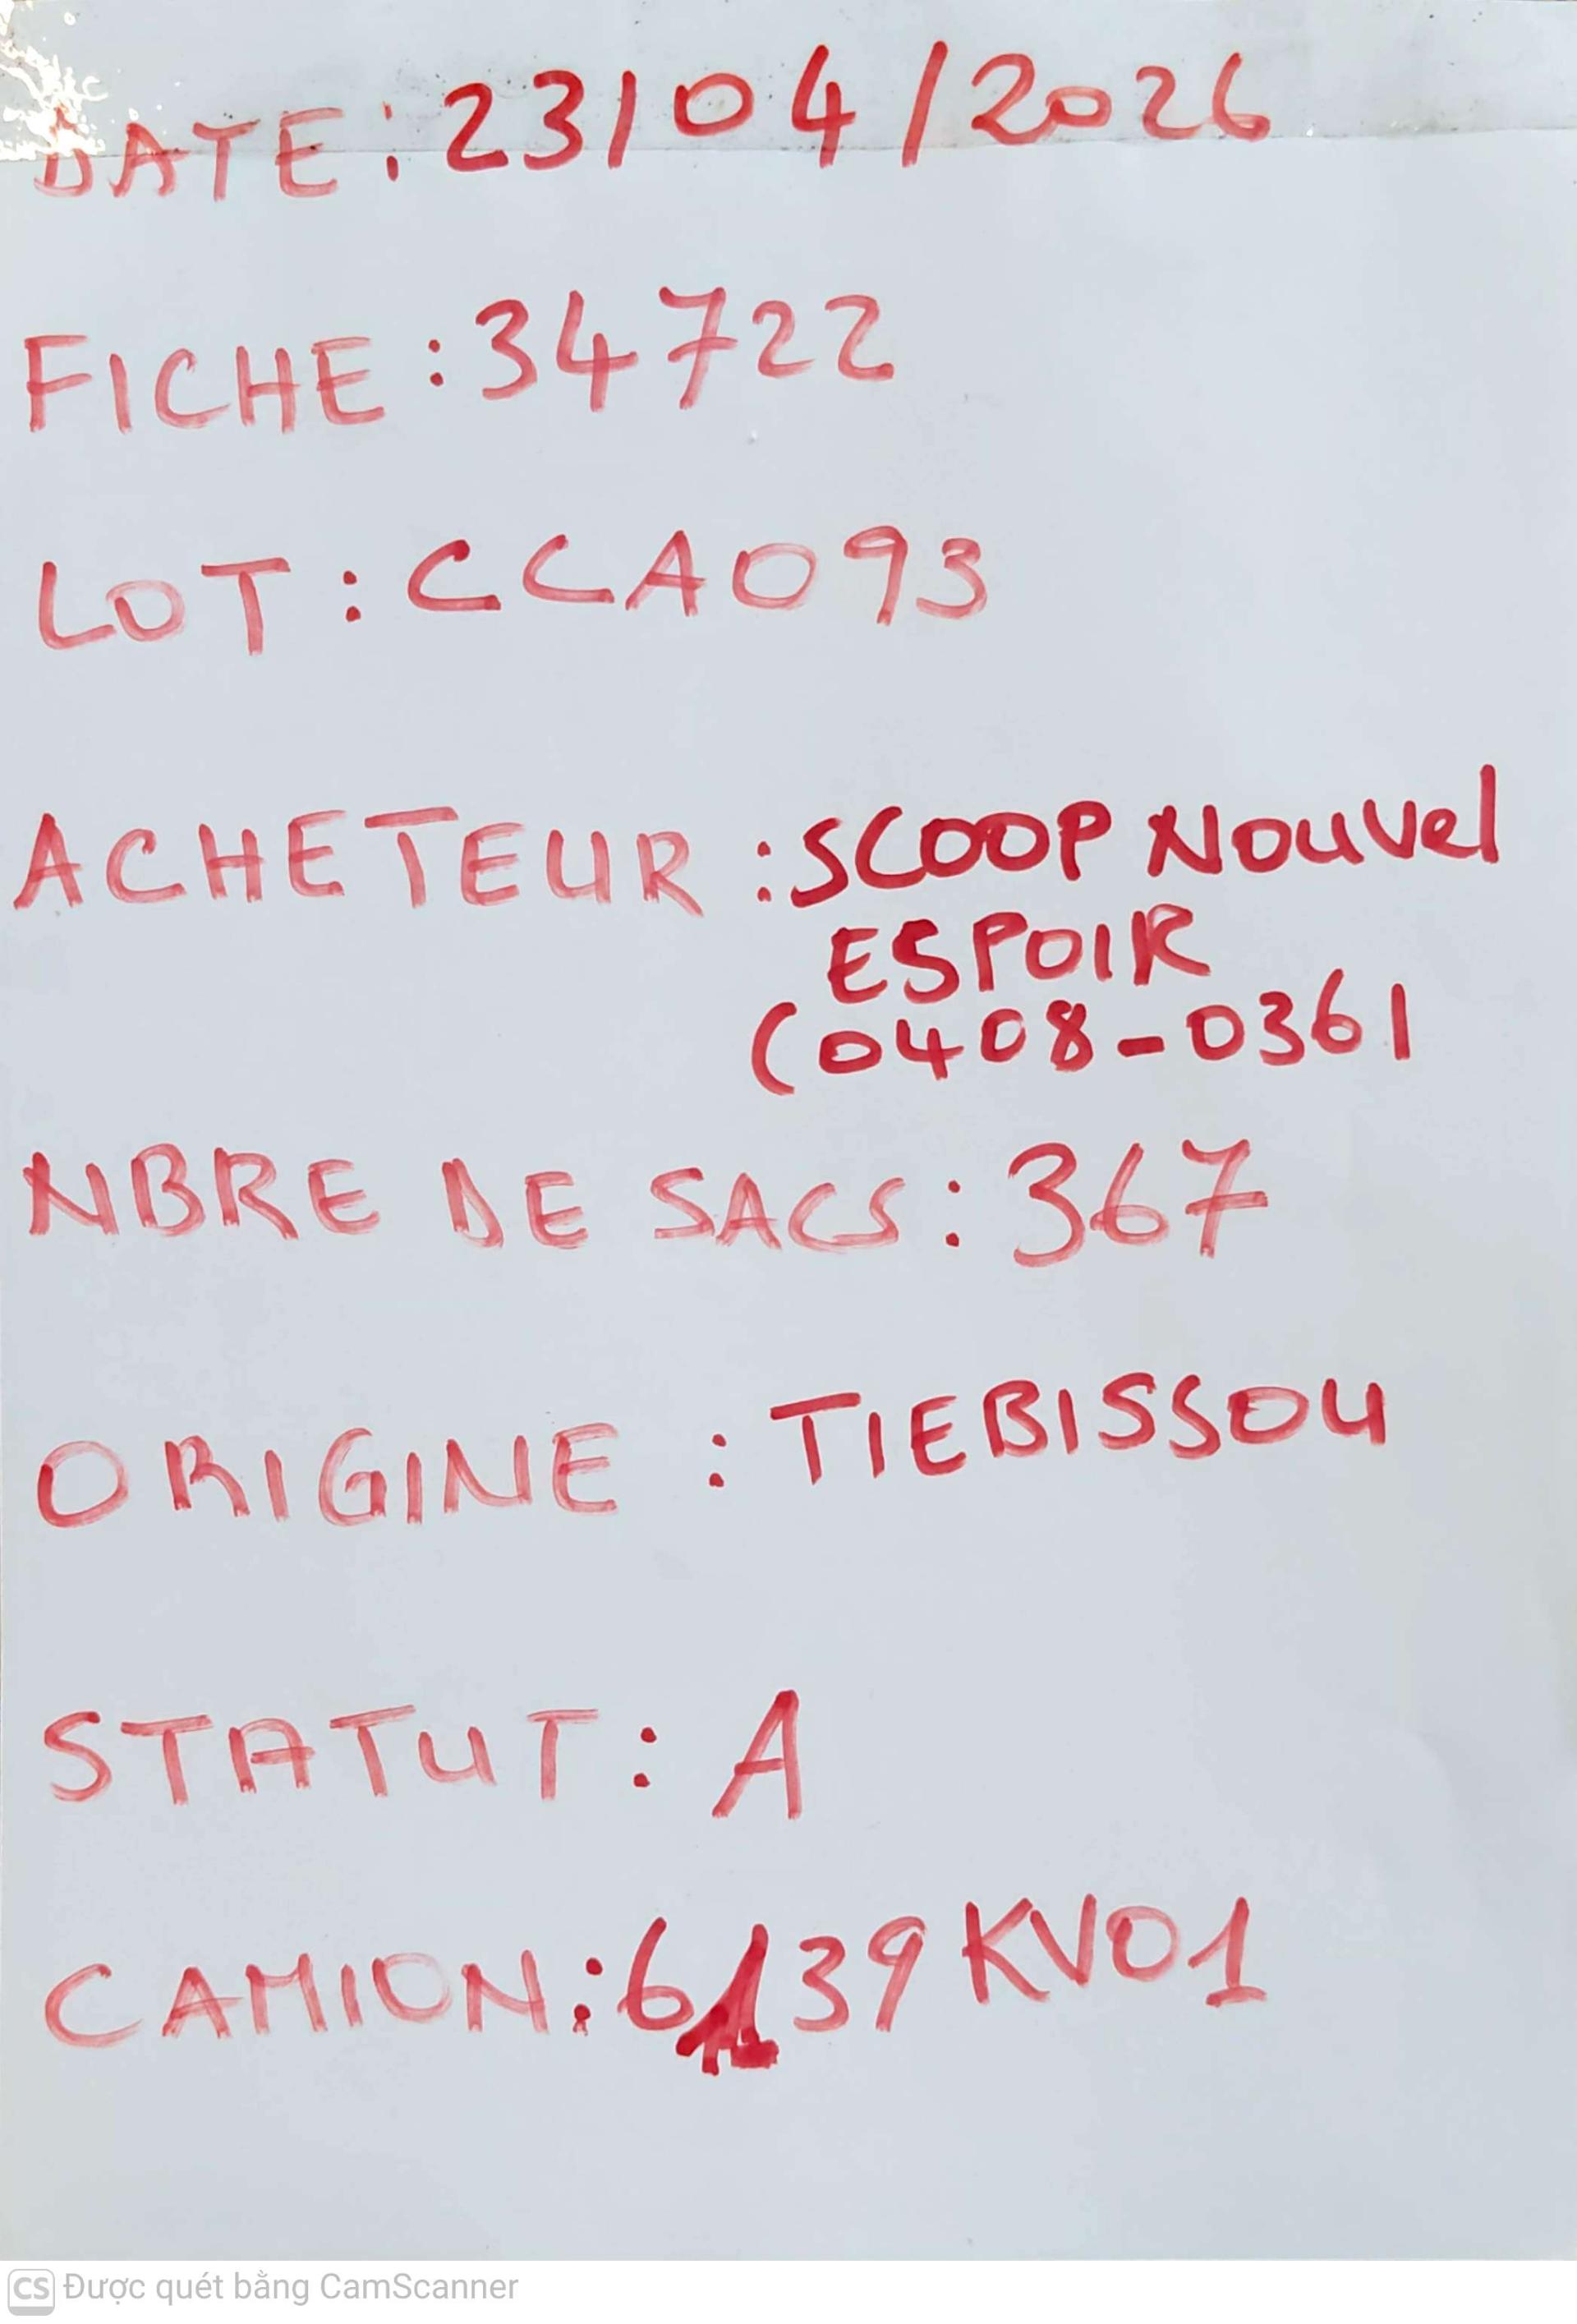 DATE : 23/04/2026
FICHE : 34722
LOT : CCA093
ACHETEUR : SCOOP NOUVEl
ESPOIR
(0408-0361
NBRE DE SACS : 367
ORIGINE : TIEBISSOU
STATUT : A
CAMION : 6139KV01
CS Được quét bằng CamScanner